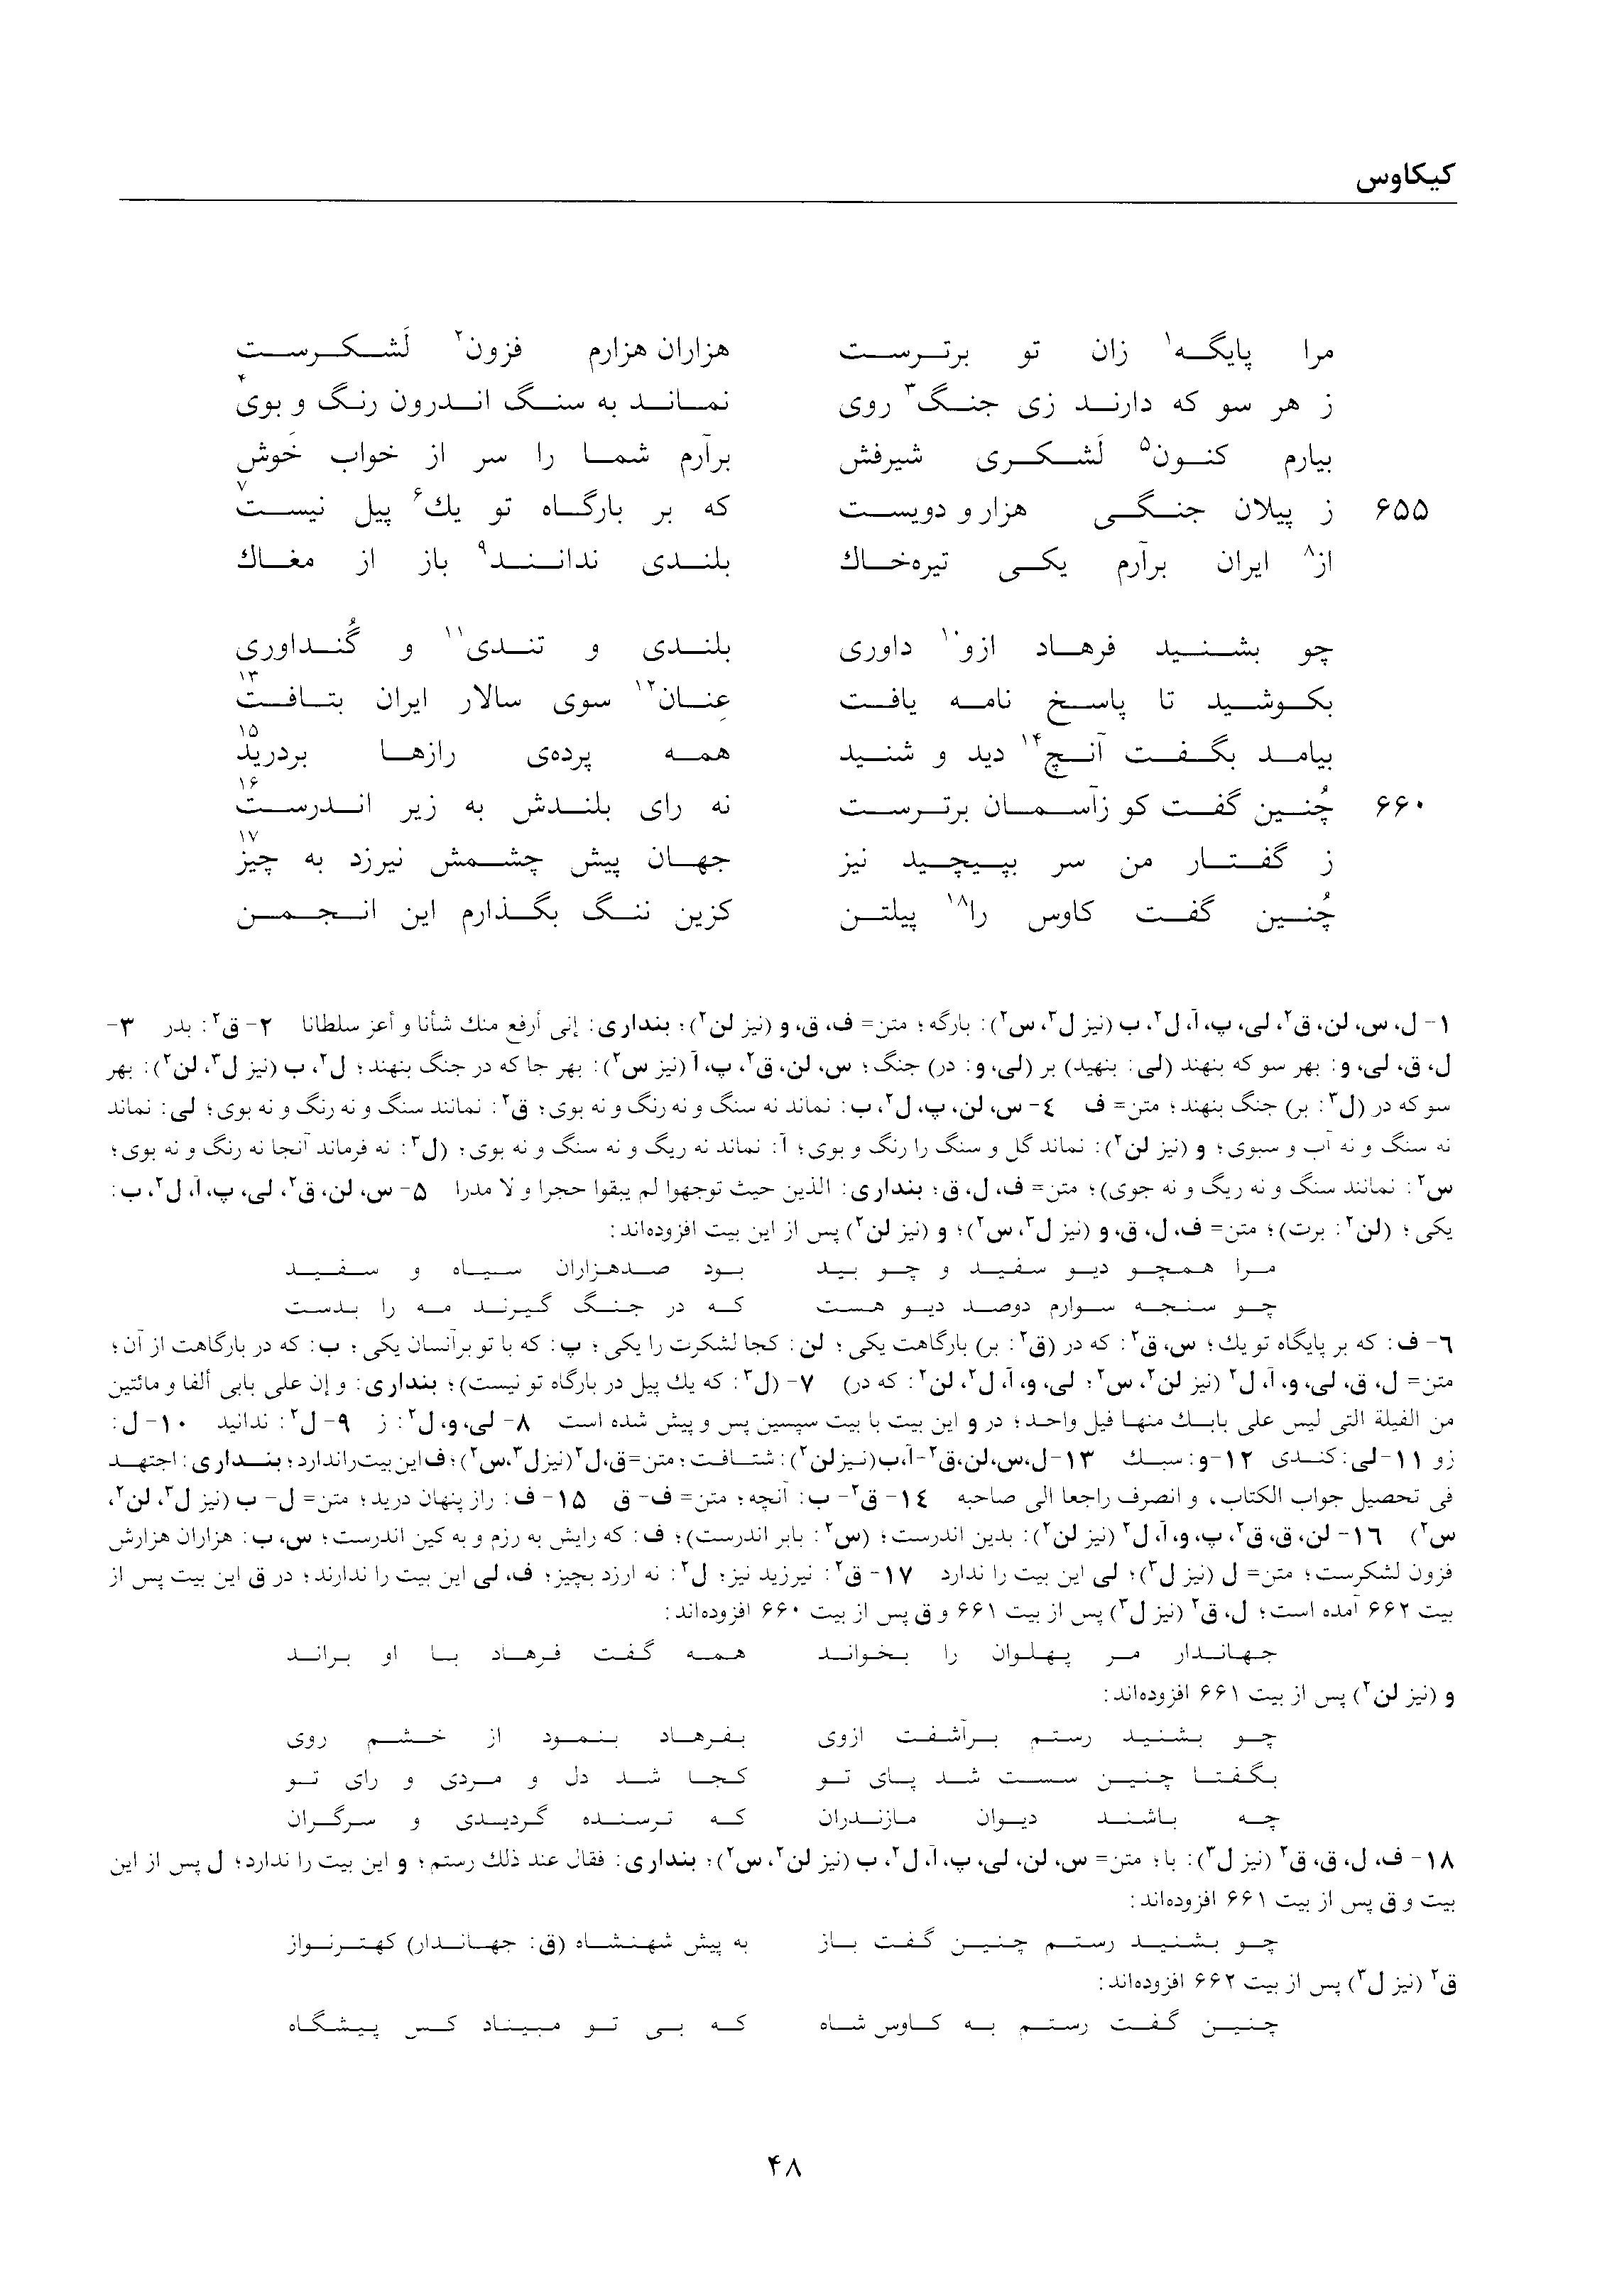 کیکاوس
مرا پایگه۱ زان تو برترست هزاران هزارم فزون۲ لَشکرست
ز هر سو که دارند زی جنگ۳ روی نماند به سنگ اندرون رنگ و بوی۴
بیارم کنون۵ لَشکری شیرفش برآرم شما را سر از خواب خَوش
۶۵۵ ز پیلان جنگی هزار و دویست که بر بارگاه تو یك۶ پیل نیست۷
از۸ ایران برآرم یکی تیره‌خاك بلندی ندانند۹ باز از مغاك
چو بشنید فرهاد ازو۱۰ داوری بلندی و تندی۱۱ و گُنداوری
بکوشید تا پاسخ نامه یافت عِنان۱۲ سوی سالار ایران بتافت۱۳
بیامد بگفت آنچ۱۴ دید و شنید همه پرده‌ی رازها بردرید۱۵
۶۶۰ چُنین گفت کو زآسمان برترست نه رای بلندش به زیر اندرست۱۶
ز گفتار من سر بپیچید نیز جهان پیش چشمش نیرزد به چیز۱۷
چُنین گفت کاوس را۱۸ پیلتن کزین ننگ بگذارم این انجمن
۱- ل، س، لن، ق۲، لی، پ، آ، ل۲، ب (نیز ل۳، س۲): بارگه؛ متن= ف، ق، و (نیز لن۲)؛ بنداری: إنی أرفع منك شأنا و أعز سلطانا ۲- ق۲: بدر ۳-
ل، ق، لی، و: بهر سو که بنهند (لی: بنهید) بر (لی، و: در) جنگ؛ س، لن، ق۲، پ، آ (نیز س۲): بهر جا که در جنگ بنهند؛ ل۲، ب (نیز ل۳، لن۲): بهر
سو که در (ل۳: بر) جنگ بنهند؛ متن= ف ٤- س، لن، پ، ل۲، ب: نماند نه سنگ و نه رنگ و نه بوی؛ ق۲: نمانند سنگ و نه رنگ و نه بوی؛ لی: نماند
نه سنگ و نه آب و سبوی؛ و (نیز لن۲): نماند گل و سنگ را رنگ و بوی؛ آ: نماند نه ریگ و نه سنگ و نه بوی؛ (ل۳: نه فرماند آنجا نه رنگ و نه بوی؛
س۲: نمانند سنگ و نه ریگ و نه جوی)؛ متن= ف، ل، ق؛ بنداری: الذین حیث توجهوا لم یبقوا حجرا و لا مدرا ۵- س، لن، ق۲، لی، پ، آ، ل۲، ب:
یکی؛ (لن۲: برت)؛ متن= ف، ل، ق، و (نیز ل۳، س۲)؛ و (نیز لن۲) پس از این بیت افزوده‌اند:
مرا همچو دیو سفید و چو بید بود صدهزاران سیاه و سفید
چو سنجه سوارم دوصد دیو هست که در جنگ گیرند مه را بدست
۶- ف: که بر پایگاه تو یك؛ س، ق۲: که در (ق۲: بر) بارگاهت یکی؛ لن: کجا لشکرت را یکی؛ پ: که با تو برآنسان یکی؛ ب: که در بارگاهت از آن؛
متن= ل، ق، لی، و، آ، ل۲ (نیز لن۲، س۲؛ لی، و، آ، ل۲، لن۲: که در) ۷- (ل۳: که یك پیل در بارگاه تو نیست)؛ بنداری: و إن علی بابی ألفا و مائتین
من الفیلة التی لیس علی بابك منها فیل واحد؛ در و این بیت با بیت سپسین پس و پیش شده است ۸- لی، و، ل۲: ز ۹- ل۲: ندانید ۱۰- ل:
زو ۱۱- لی: کندی ۱۲- و: سبك ۱۳- ل، س، لن، ق۲- آ، ب (نیز لن۲): شتافت؛ متن= ق، ل۲ (نیز ل۳، س۲)؛ ف این بیت را ندارد؛ بنداری: اجتهد
فی تحصیل جواب الکتاب، و انصرف راجعا الی صاحبه ۱٤- ق۲- ب: آنچه؛ متن= ف- ق ۱۵- ف: راز پنهان درید؛ متن= ل- ب (نیز ل۳، لن۲،
س۲) ۱۶- لن، ق، ق۲، پ، و، آ، ل۲ (نیز لن۲): بدین اندرست؛ (س۲: بابر اندرست)؛ ف: که رایش به رزم و به کین اندرست؛ س، ب: هزاران هزارش
فزون لشکرست؛ متن= ل (نیز ل۳)؛ لی این بیت را ندارد ۱۷- ق۲: نیرزید نیز؛ ل۲: نه ارزد بچیز؛ ف، لی این بیت را ندارند؛ در ق این بیت پس از
بیت ۶۶۲ آمده است؛ ل، ق۲ (نیز ل۳) پس از بیت ۶۶۱ و ق پس از بیت ۶۶۰ افزوده‌اند:
جهاندار مر پهلوان را بخواند همه گفت فرهاد با او براند
و (نیز لن۲) پس از بیت ۶۶۱ افزوده‌اند:
چو بشنید رستم برآشفت ازوی بفرهاد بنمود از خشم روی
بگفتا چنین سست شد پای تو کجا شد دل و مردی و رای تو
چه باشند دیوان مازندران که ترسنده گردیدی و سرگران
۱۸- ف، ل، ق، ق۲ (نیز ل۳): با؛ متن= س، لن، لی، پ، آ، ل۲، ب (نیز لن۲، س۲)؛ بنداری: فقال عند ذلك رستم؛ و این بیت را ندارد؛ ل پس از این
بیت و ق پس از بیت ۶۶۱ افزوده‌اند:
چو بشنید رستم چنین گفت باز به پیش شهنشاه (ق: جهاندار) کهترنواز
ق۲ (نیز ل۳) پس از بیت ۶۶۲ افزوده‌اند:
چنین گفت رستم به کاوس شاه که بی تو مبیناد کس پیشگاه
۴۸